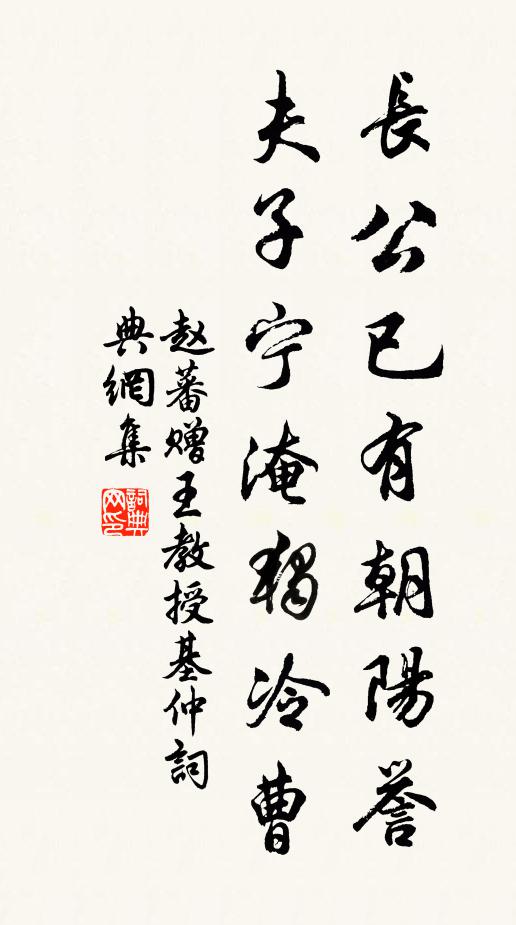 長公已有朝陽譽
夫子宁淹獨冷曹
赵蕃赠王教授基仲詞
典網集
詞典网印